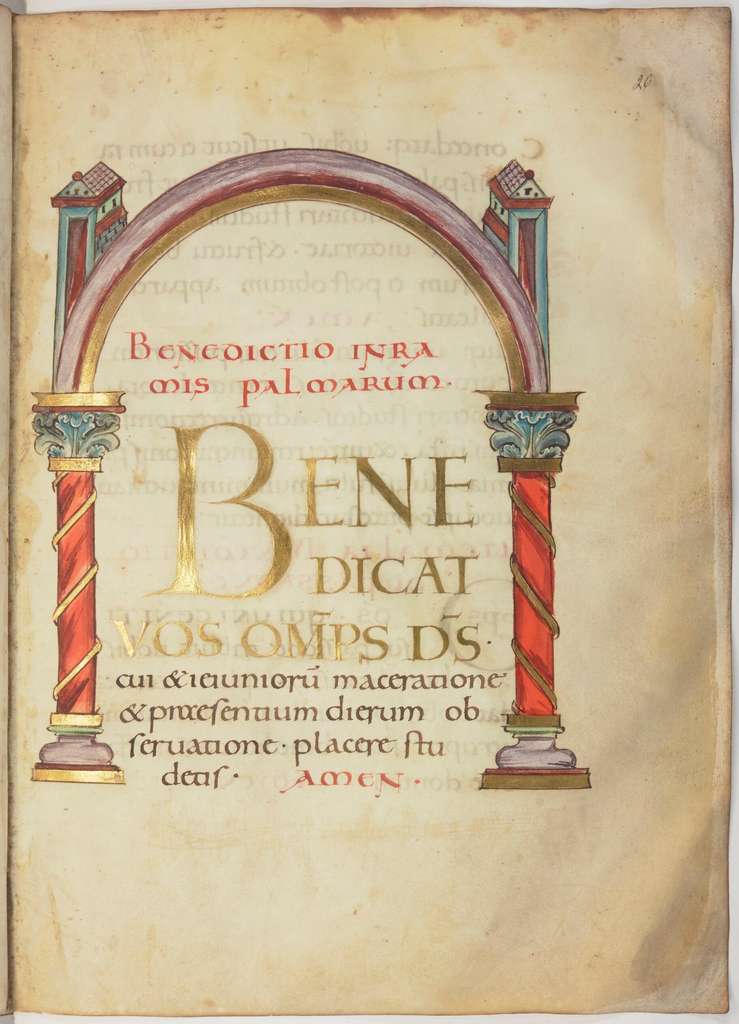 20
Benedictio in ra
mis palmarum.
BENE
DICAT
VOS OM̅PS D̅S·
cui & ieiuniorū maceratione
& praesentium dierum ob
seruatione· placere stu
detis· AMEN·